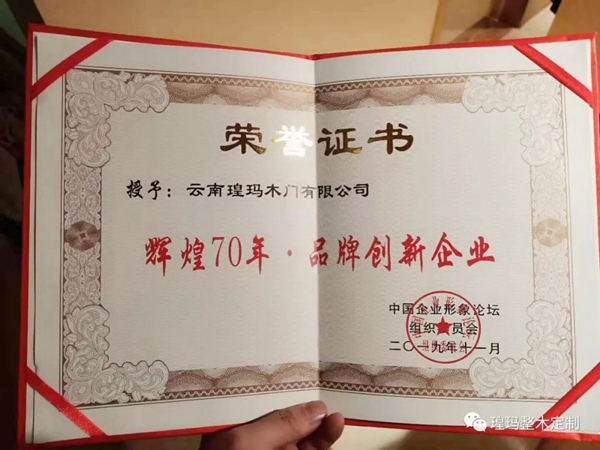 荣誉证书
授予：云南瑝玛木门有限公司
辉煌70年·品牌创新企业
中国企业形象论坛
组织委员会
二〇一九年十一月
瑝玛整木定制